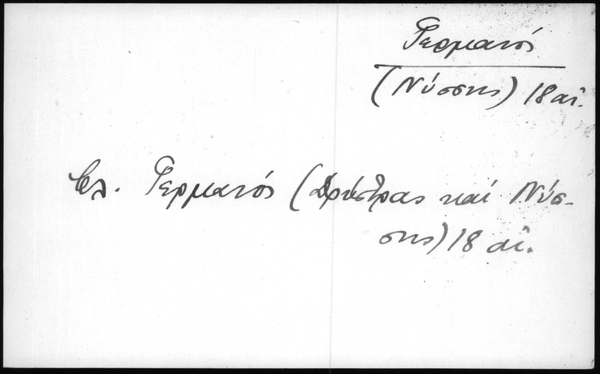 Γερμανός
(Νύσσης) 18 αἰ.
βλ. Γερμανός (Δρύστρας καί Νύσ-
σης) 18 αἰ.